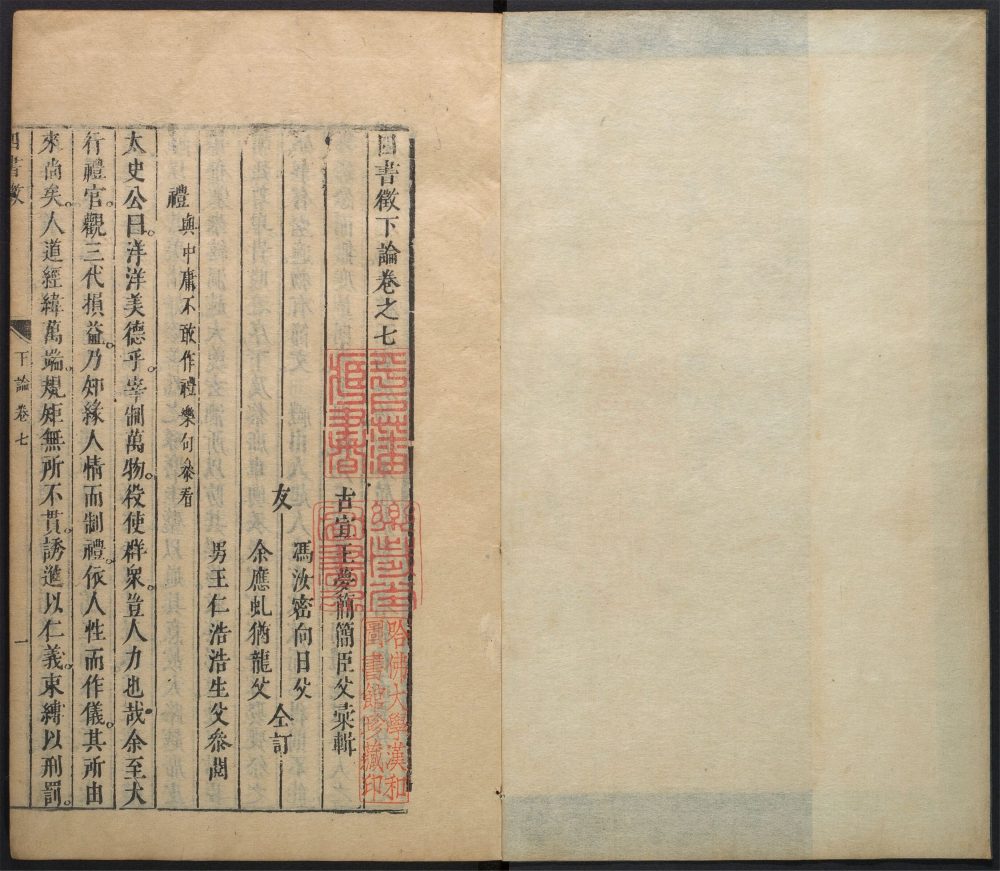 四書徵下論卷之七
古宣王夢簡簡臣父彙輯
馮汝密向日父
友
余應虬猶龍父
仝訂
男王仁浩浩生父叅閱
禮與中庸不敢作禮樂句叅看
太史公曰洋洋美德乎宰制萬物役使群衆豈人力也哉余至大
行禮官觀三代損益乃知緣人情而制禮依人性而作儀其所由
來尚矣人道經緯萬端規矩無所不貫誘進以仁義束縛以刑罰
四書徵
下論卷七
一
哈佛大學漢和
圖書館珍藏印